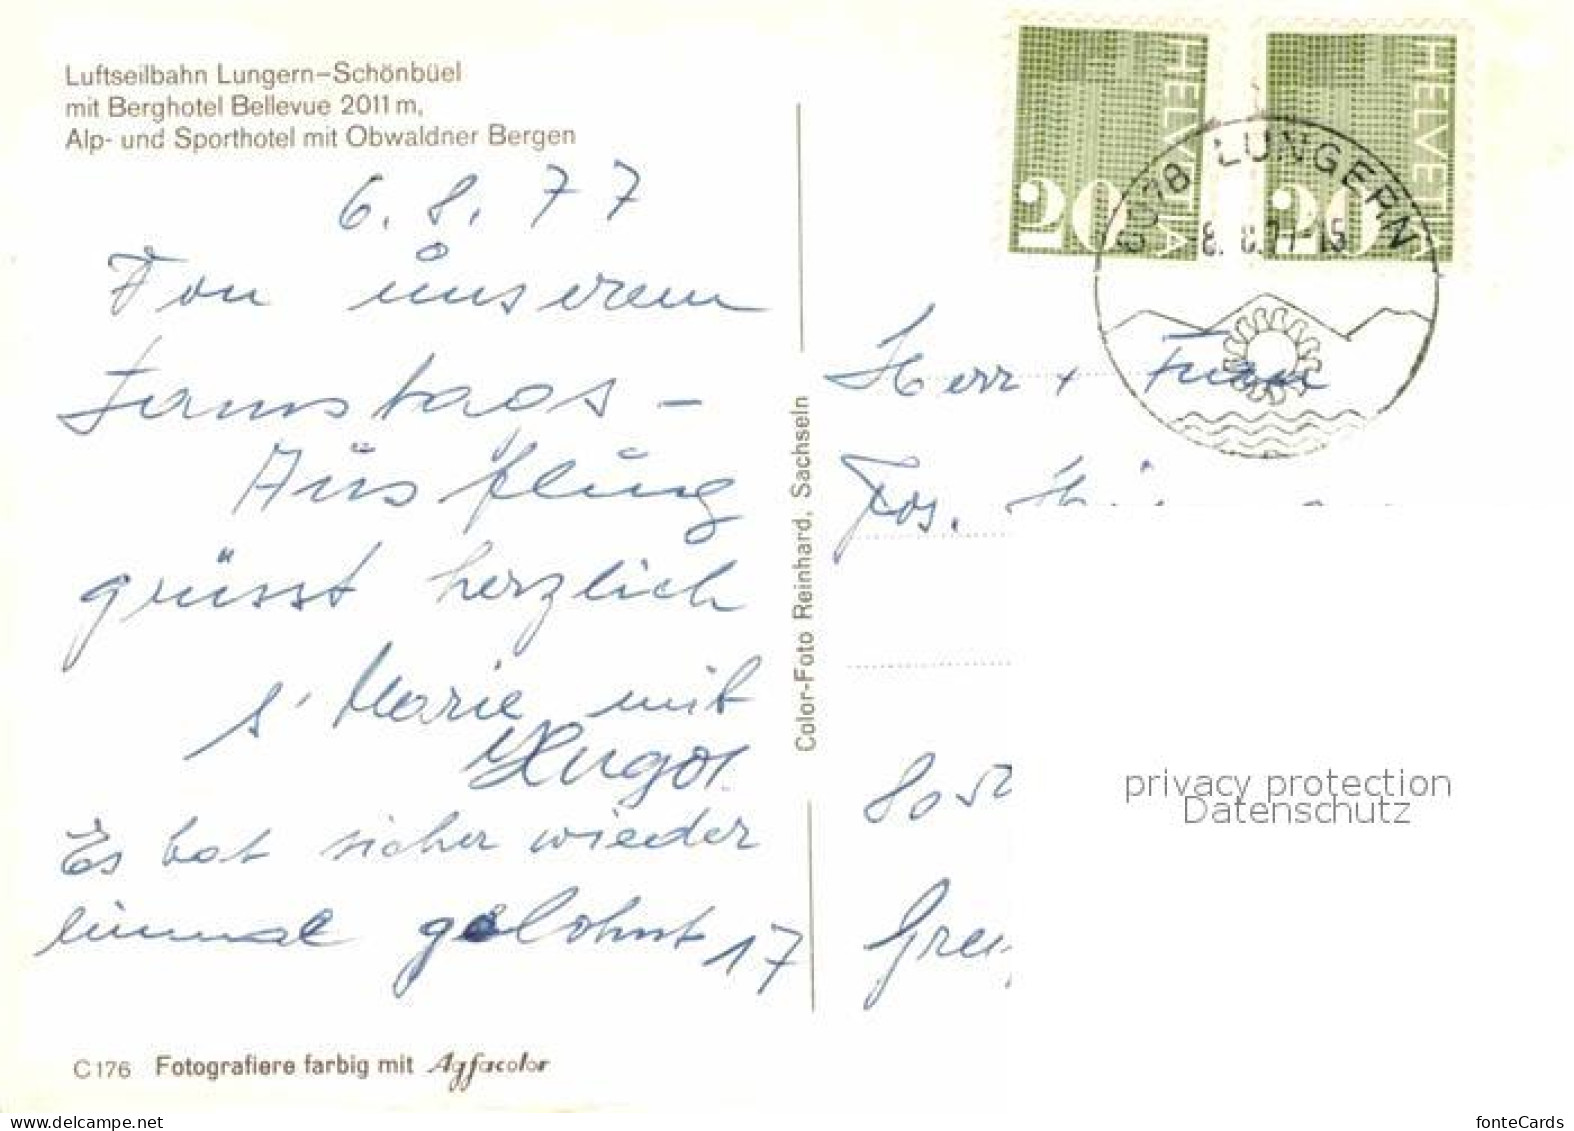 Luftseilbahn Lungern–Schönbüel
mit Berghotel Bellevue 2011 m,
Alp- und Sporthotel mit Obwaldner Bergen
6. 8. 77
Von unserem
Samstags-
Ausflug
grüsst herzlich
s' Marie mit
Hugo.
Es hat sicher wieder
einmal gelohnt
17
C176 Fotografiere farbig mit Agfacolor
Color-Foto Reinhard, Sachseln
HELVETIA
20
HELVETIA
20
6078 LUNGERN
8. 8. 77-15
Herr + Frau
Jos.
805
Grei
privacy protection
Datenschutz
fonteCards